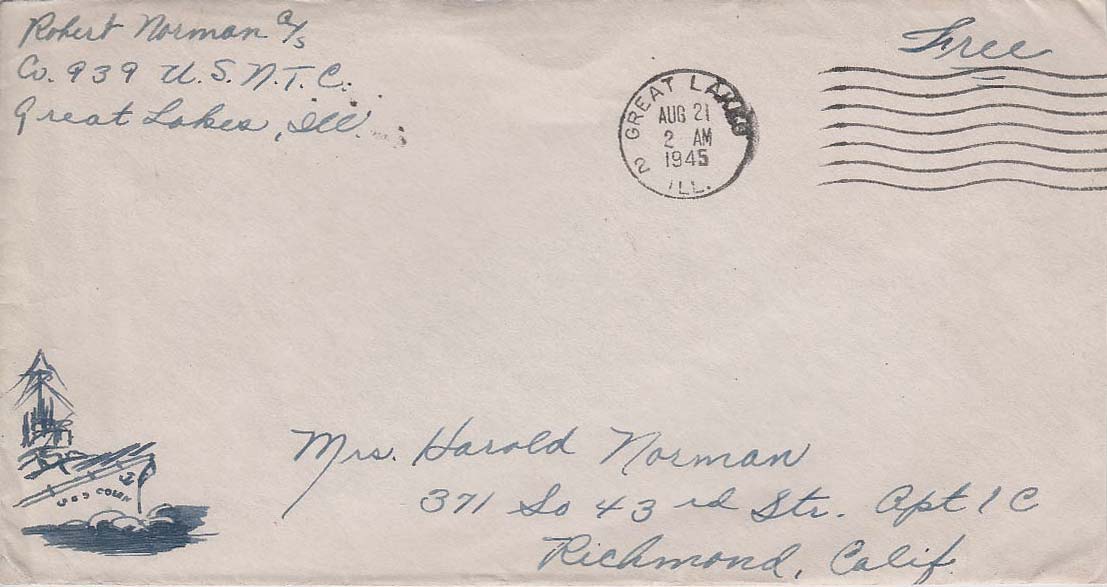 Robert Norman A/S
Co. 939 U.S.N.T.C.
Great Lakes, Ill.
Free
GREAT LAKES
AUG 21
2 AM
1945
2 ILL.
Mrs. Harold Norman
371 So 43rd Str. Apt 1C
Richmond, Calif.